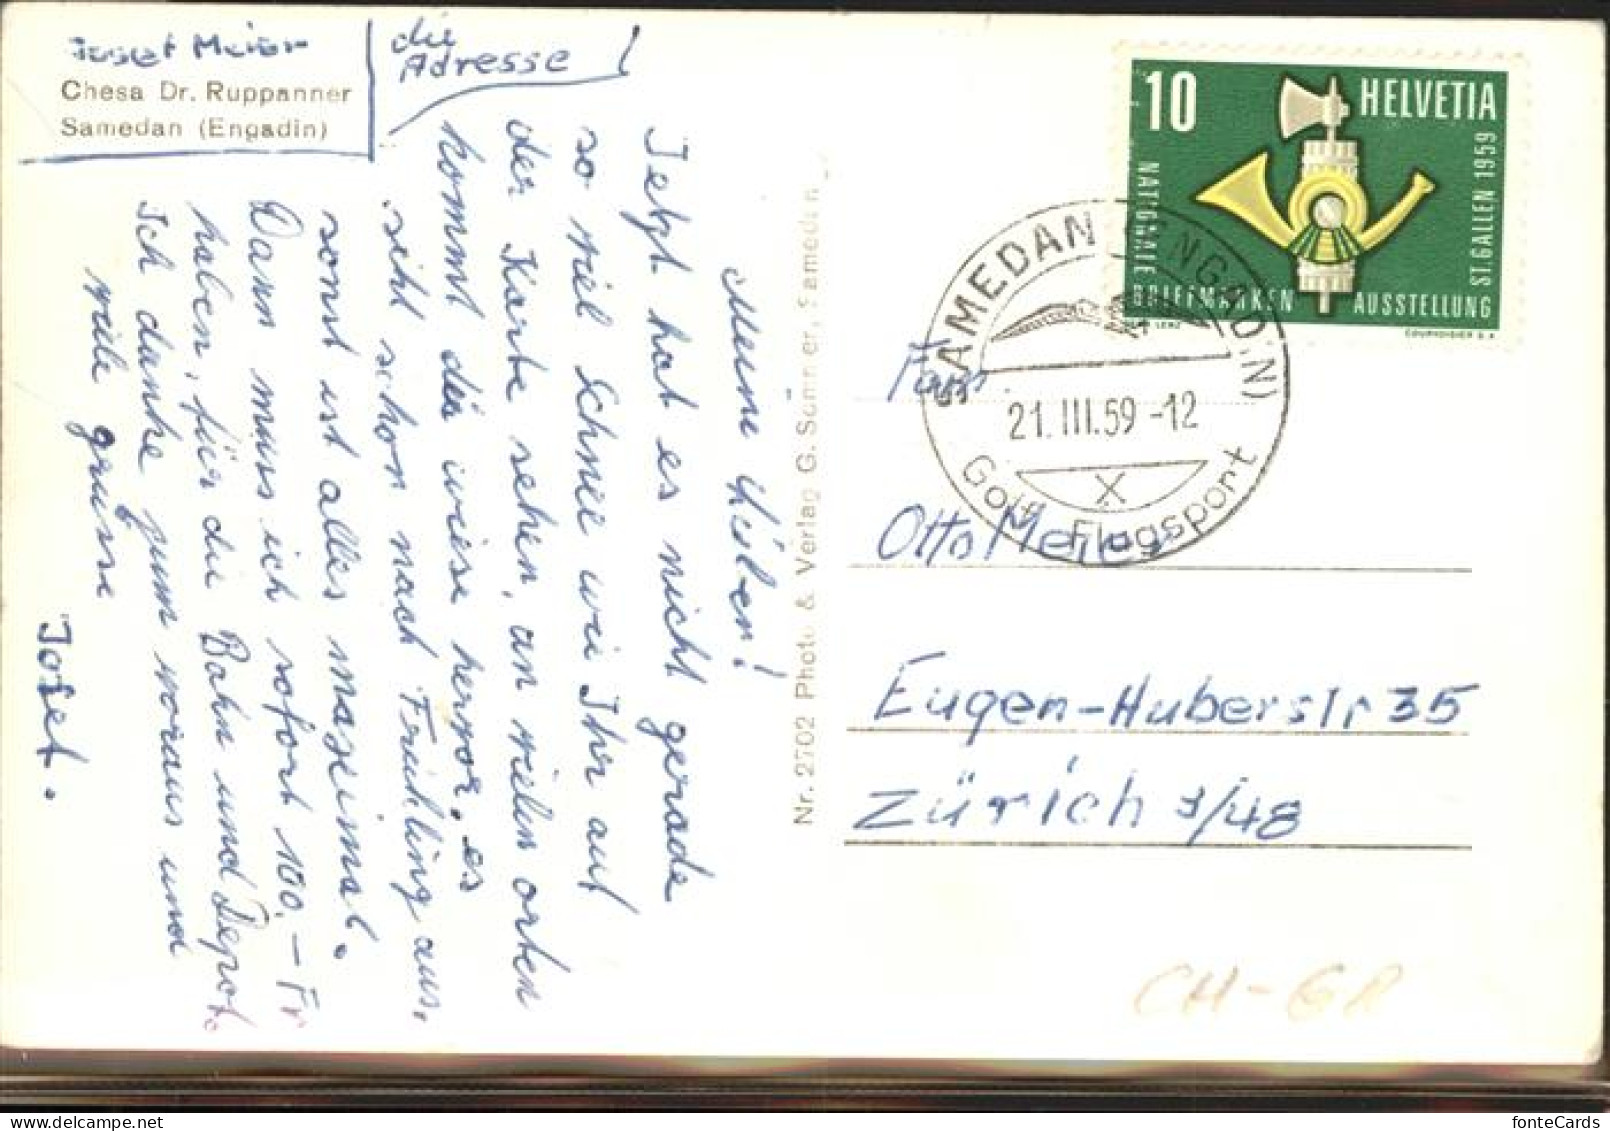 Josef Meier
Chesa Dr. Ruppanner
Samedan (Engadin)
die
Adresse
Meine Lieben!
Jetzt hat es nicht gerade
so viel Schnee wie Ihr auf
der Karte sehen, an vielen orten
kommt die wiese hervor, es
sieht schon nach Frühling aus,
sonst ist alles maseimal.
Dann muss ich sofort 100.– Fr
haben, für die Bahn und Depot.
Ich danke zum voraus und
viele grüsse
Josef.
Nr. 2702 Photo & Verlag G. Sommer, Samedan
10 HELVETIA
NATIONALE BRIEFMARKEN AUSSTELLUNG ST.GALLEN 1959
COURVOISIER S.A.
SAMEDAN (ENGADIN)
21.III.59 -12
X
Golf Flugsport
Fam.
Otto Meier
Eugen-Huberstr 35
Zürich 3/48
CH-GR
fonteCards